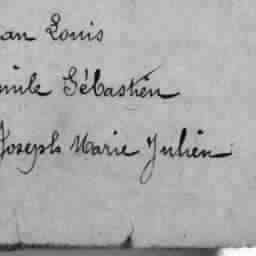 an Louis
mile Sébastien
Joseph Marie Julien